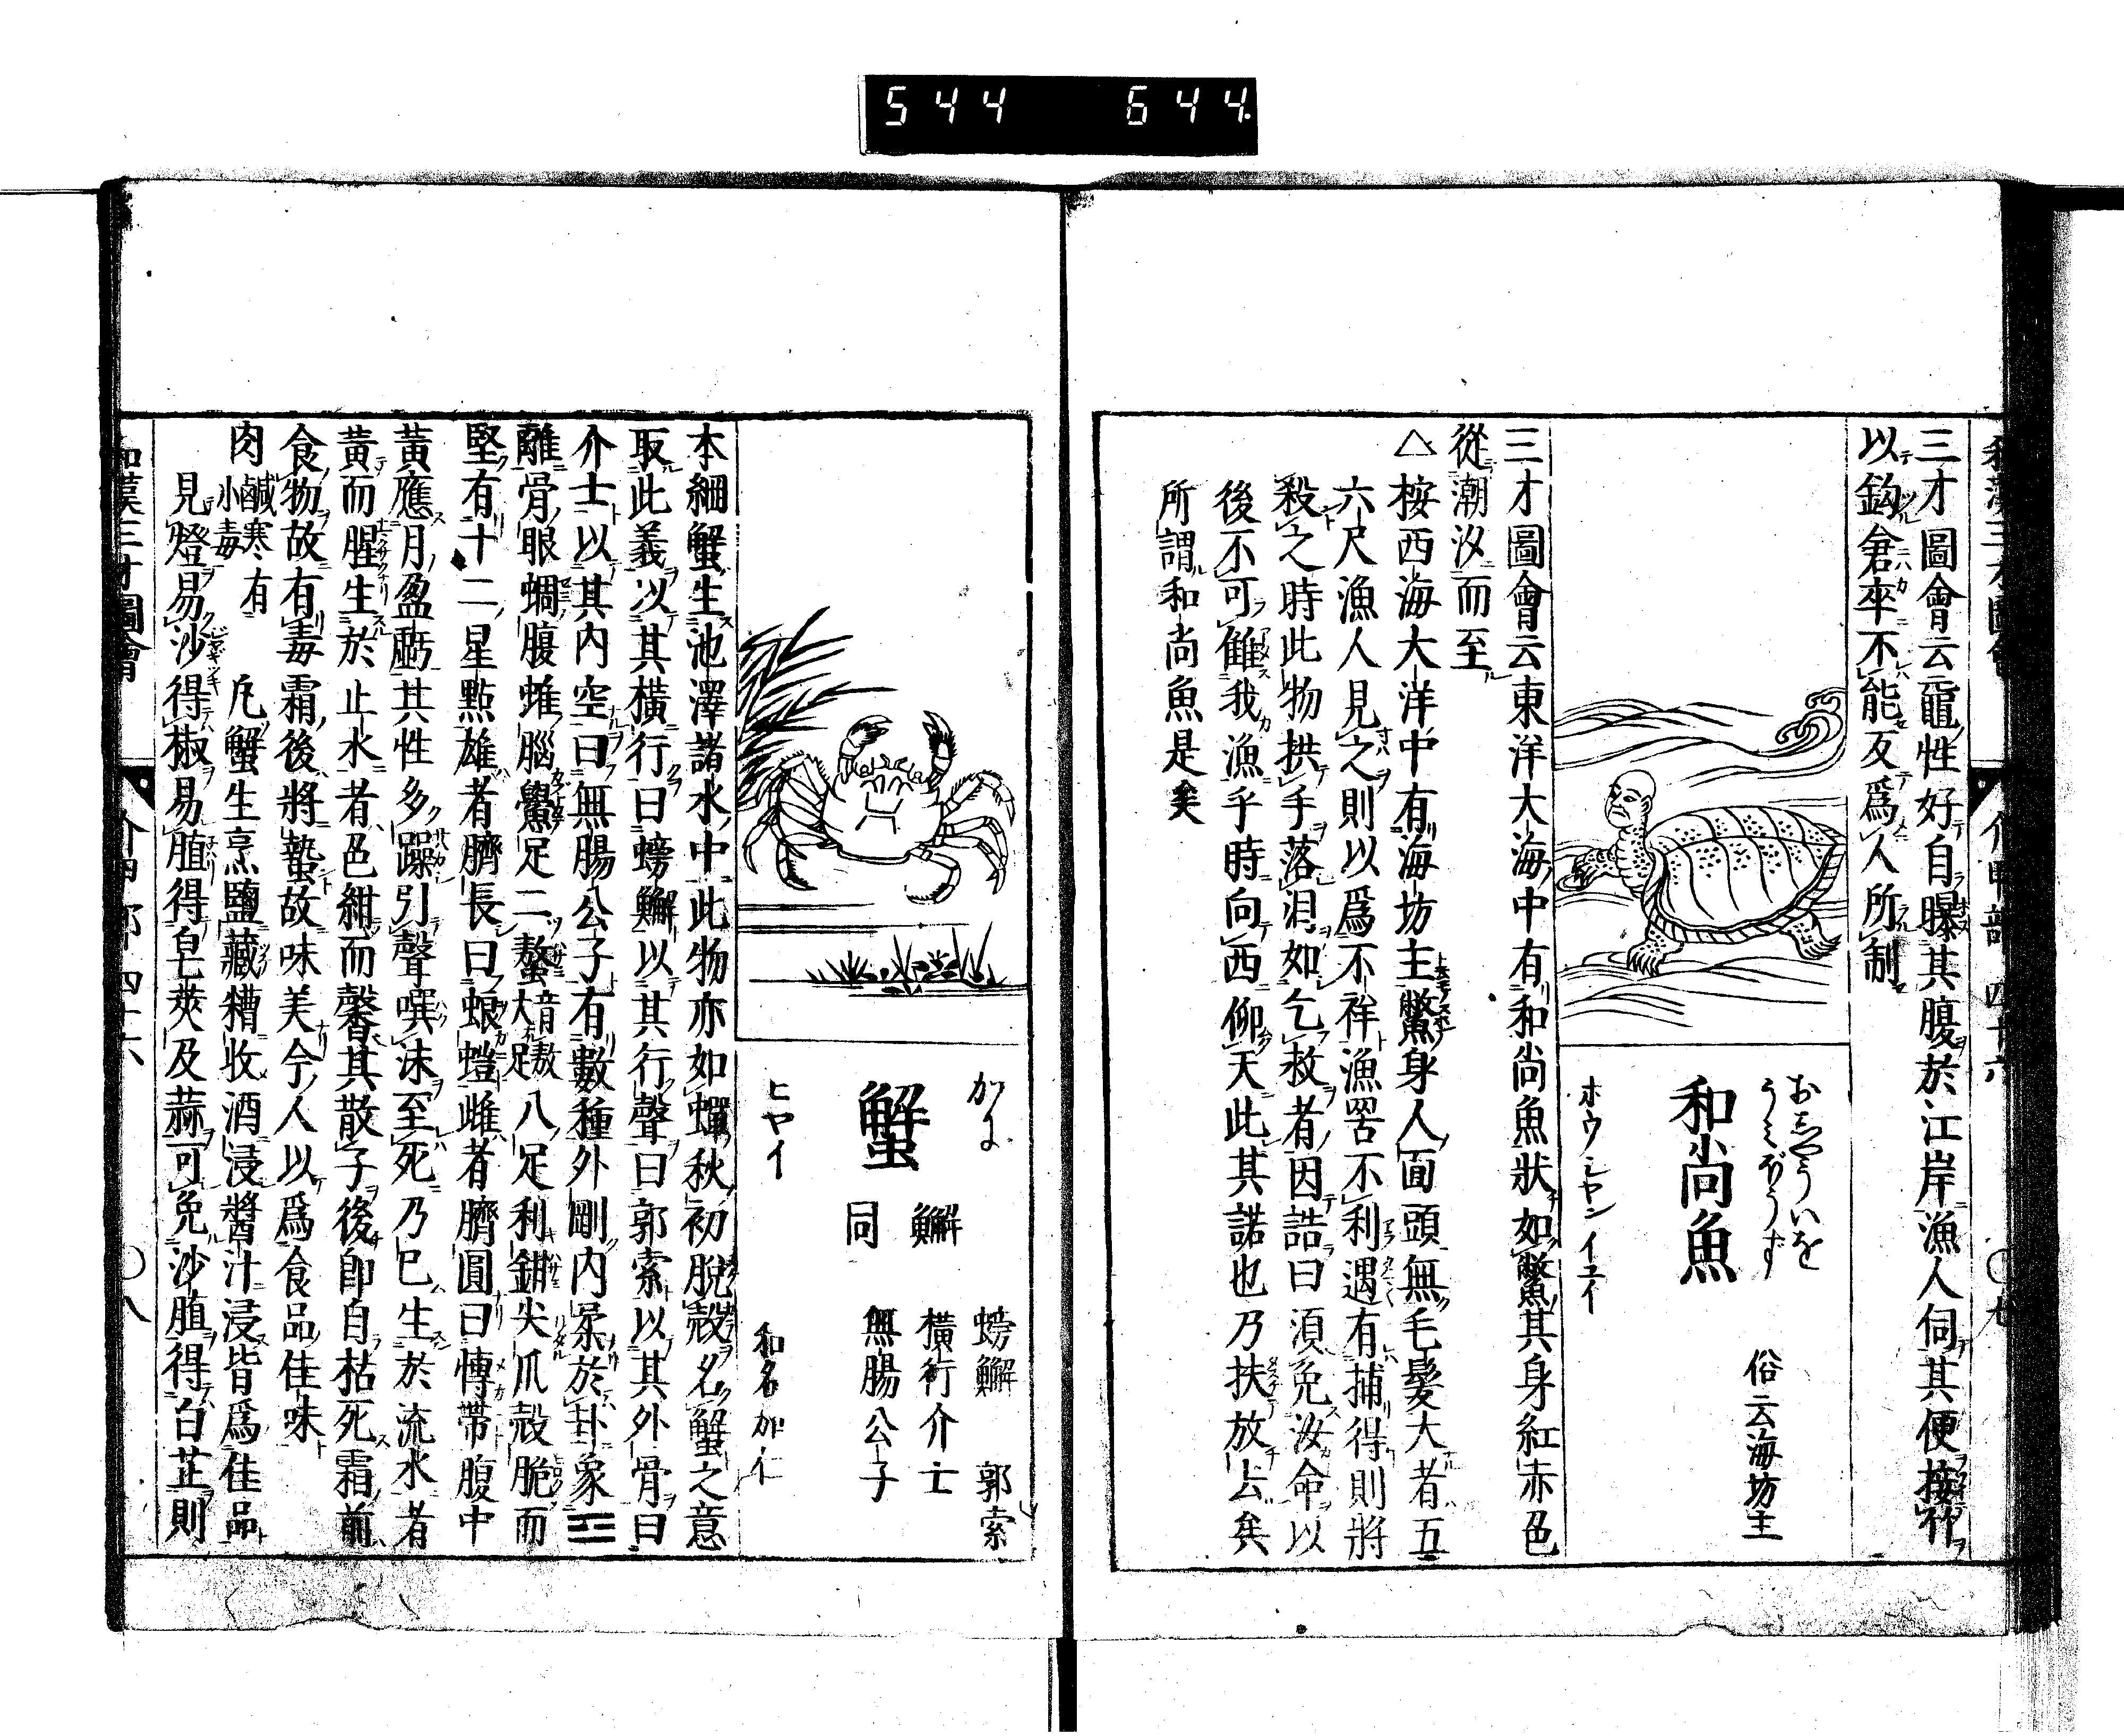 544 644
三才圖會云黿性好自曝其腹於江岸漁人伺其便
以鈎倉卒不能反爲人所制
おしやういを
うみぼうず
和尚魚
俗云海坊主
ホウシヤンイユイ
三才圖會云東洋大海中有和尚魚狀如鱉其身紅赤色
從潮汐而至
△按西海大洋中有海坊主鱉身人面頭無毛髮大者五
六尺漁人見之則以爲不祥漁罟不利遇有捕得則將
殺之時此物拱手落淚如乞救者因誥曰須免汝命以
後不可讎我漁乎時向西仰天此其諾也乃扶放去矣
所謂和尚魚是矣
かに
蟹
螃蠏 郭索
蠏 橫行介士
同 無腸公子
ヒヤイ
和名加仁
本綱蟹生池澤諸水中此物亦如蟬秋初脫殼名蟹之意
取此義以其橫行曰螃蠏以其行聲曰郭索以其外骨曰
介士以其內空曰無腸公子有數種外剛內柔於卦象☲
離骨眼蜩腹蜼腦鱟足二螯八足利鉗尖爪殼脆而
堅有十二星點雄者臍長曰蜋螘雌者臍圓曰博帶腹中
黃應月盈虧其性多躁引聲噀沫至死乃已生於流水者
黃而腥生於止水者色紺而馨其散子後即自枯死霜前
食物故有毒霜後將蟄故味美今人以爲食品佳味
肉 鹹寒有小毒 凡蟹生烹鹽藏糟收酒浸醬汁浸皆爲佳品
見燈易沙得椒易䐈得皂莢及蒜可免沙䐈得白芷則
和漢三才圖會 介甲部 四十六 〇八